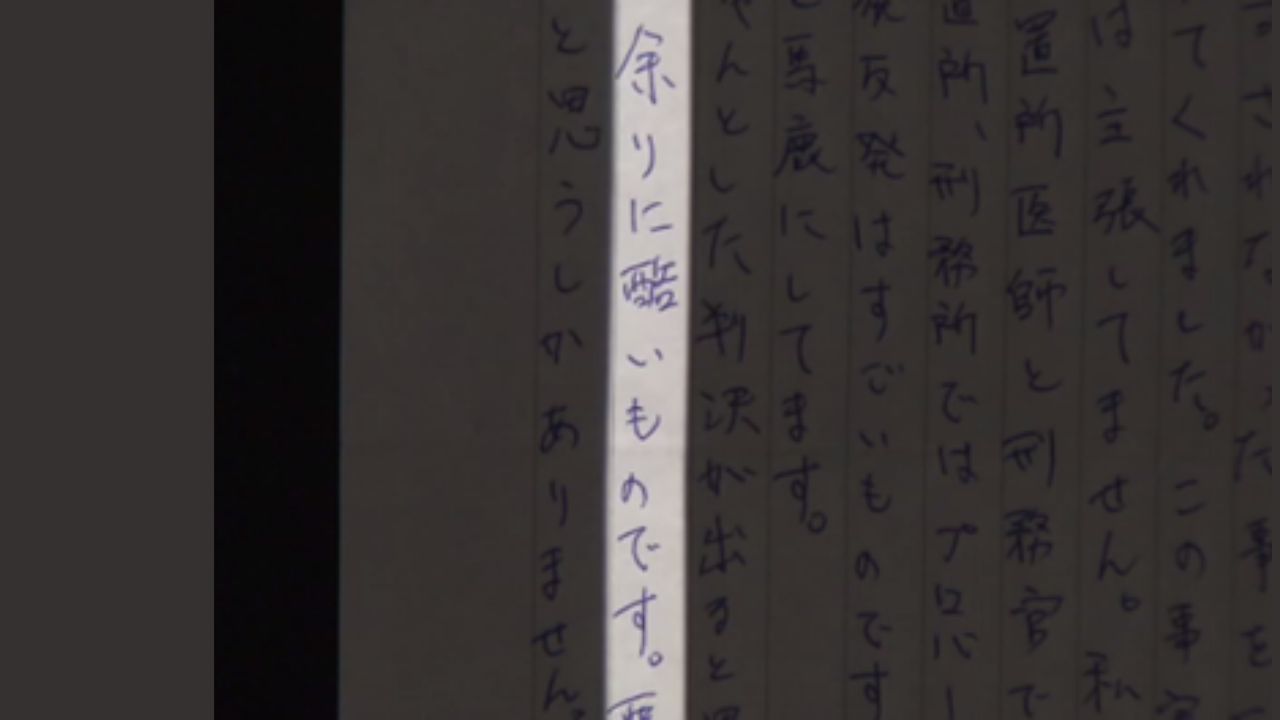 されたかった事を
てくれました。この事
は主張してません。私
置所医師と刑務官で
所、刑務所ではプロパー
反発はすごいものです
馬鹿にしてます。
んとした判決が出ると
余りに酷いものです。
と思うしかありません。